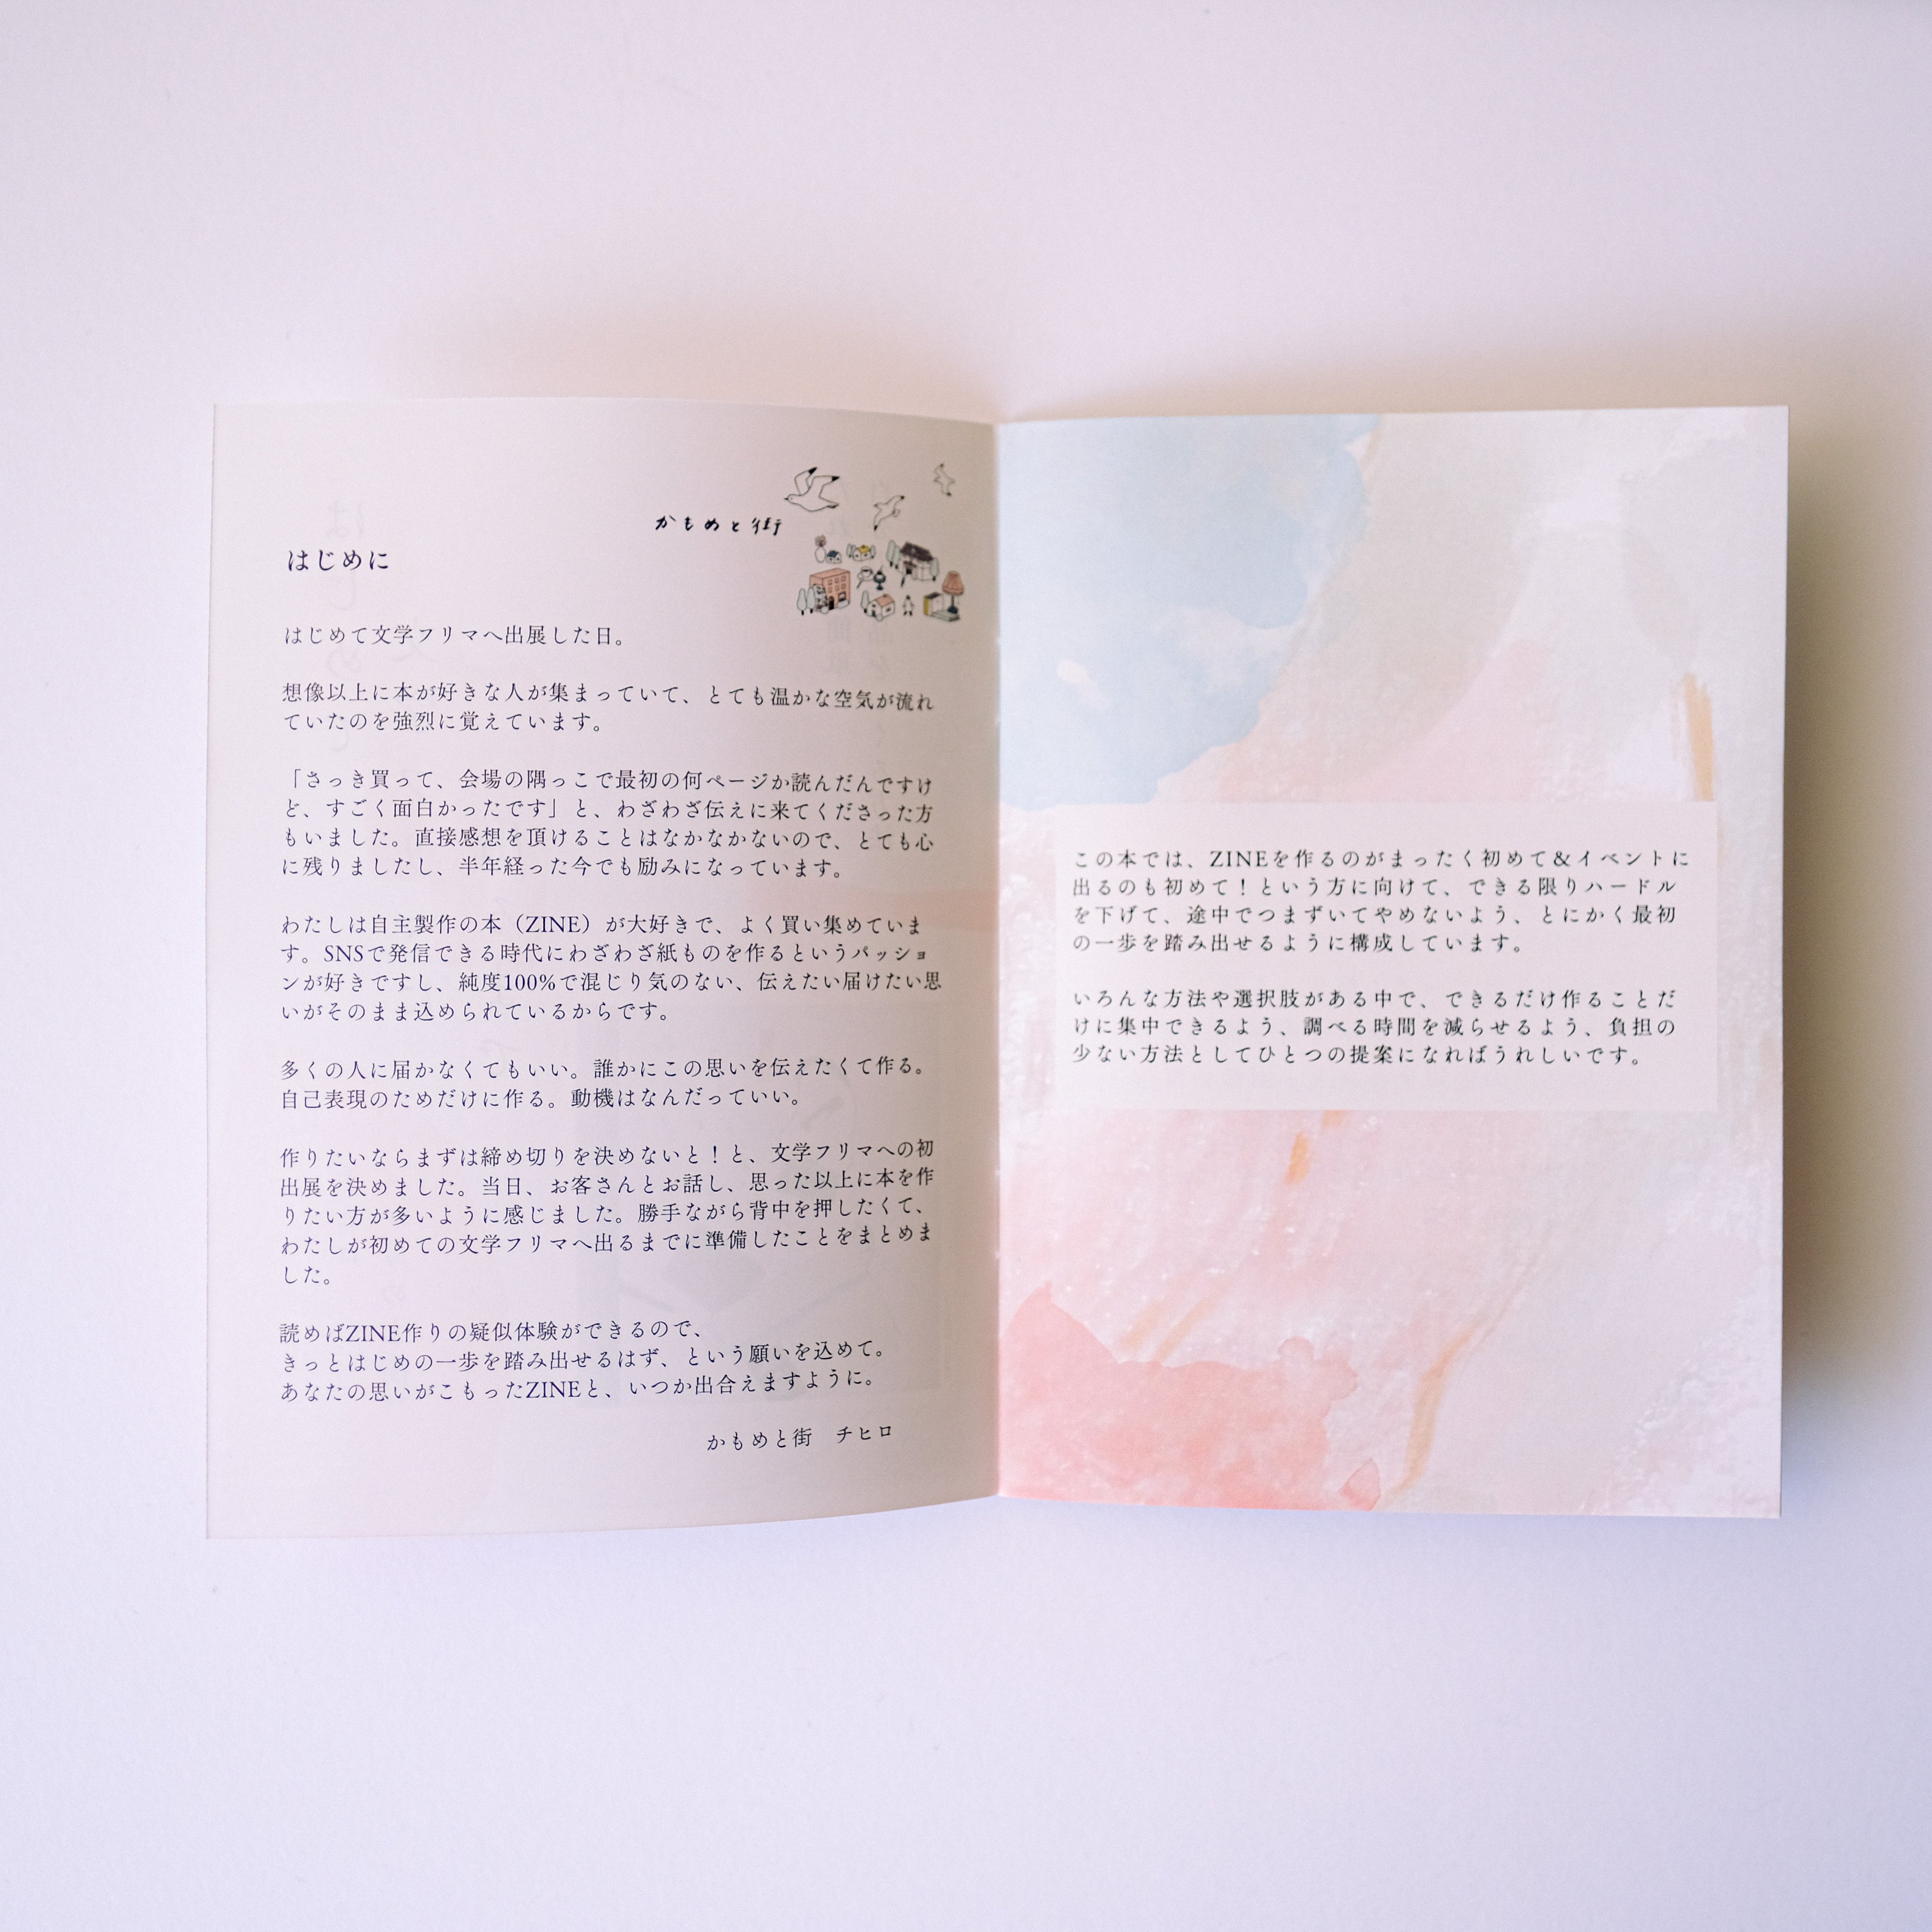 かもめと街
はじめに
はじめて文学フリマへ出展した日。
想像以上に本が好きな人が集まっていて、とても温かな空気が流れ
ていたのを強烈に覚えています。
「さっき買って、会場の隅っこで最初の何ページか読んだんですけ
ど、すごく面白かったです」と、わざわざ伝えに来てくださった方
もいました。直接感想を頂けることはなかなかないので、とても心
に残りましたし、半年経った今でも励みになっています。
わたしは自主製作の本（ZINE）が大好きで、よく買い集めていま
す。SNSで発信できる時代にわざわざ紙ものを作るというパッショ
ンが好きですし、純度100%で混じり気のない、伝えたい届けたい思
いがそのまま込められているからです。
多くの人に届かなくてもいい。誰かにこの思いを伝えたくて作る。
自己表現のためだけに作る。動機はなんだっていい。
作りたいならまずは締め切りを決めないと！と、文学フリマへの初
出展を決めました。当日、お客さんとお話し、思った以上に本を作
りたい方が多いように感じました。勝手ながら背中を押したくて、
わたしが初めての文学フリマへ出るまでに準備したことをまとめま
した。
読めばZINE作りの疑似体験ができるので、
きっとはじめの一歩を踏み出せるはず、という願いを込めて。
あなたの思いがこもったZINEと、いつか出合えますように。
かもめと街　チヒロ
この本では、ZINEを作るのがまったく初めて＆イベントに
出るのも初めて！という方に向けて、できる限りハードル
を下げて、途中でつまずいてやめないよう、とにかく最初
の一歩を踏み出せるように構成しています。
いろんな方法や選択肢がある中で、できるだけ作ることだ
けに集中できるよう、調べる時間を減らせるよう、負担の
少ない方法としてひとつの提案になればうれしいです。